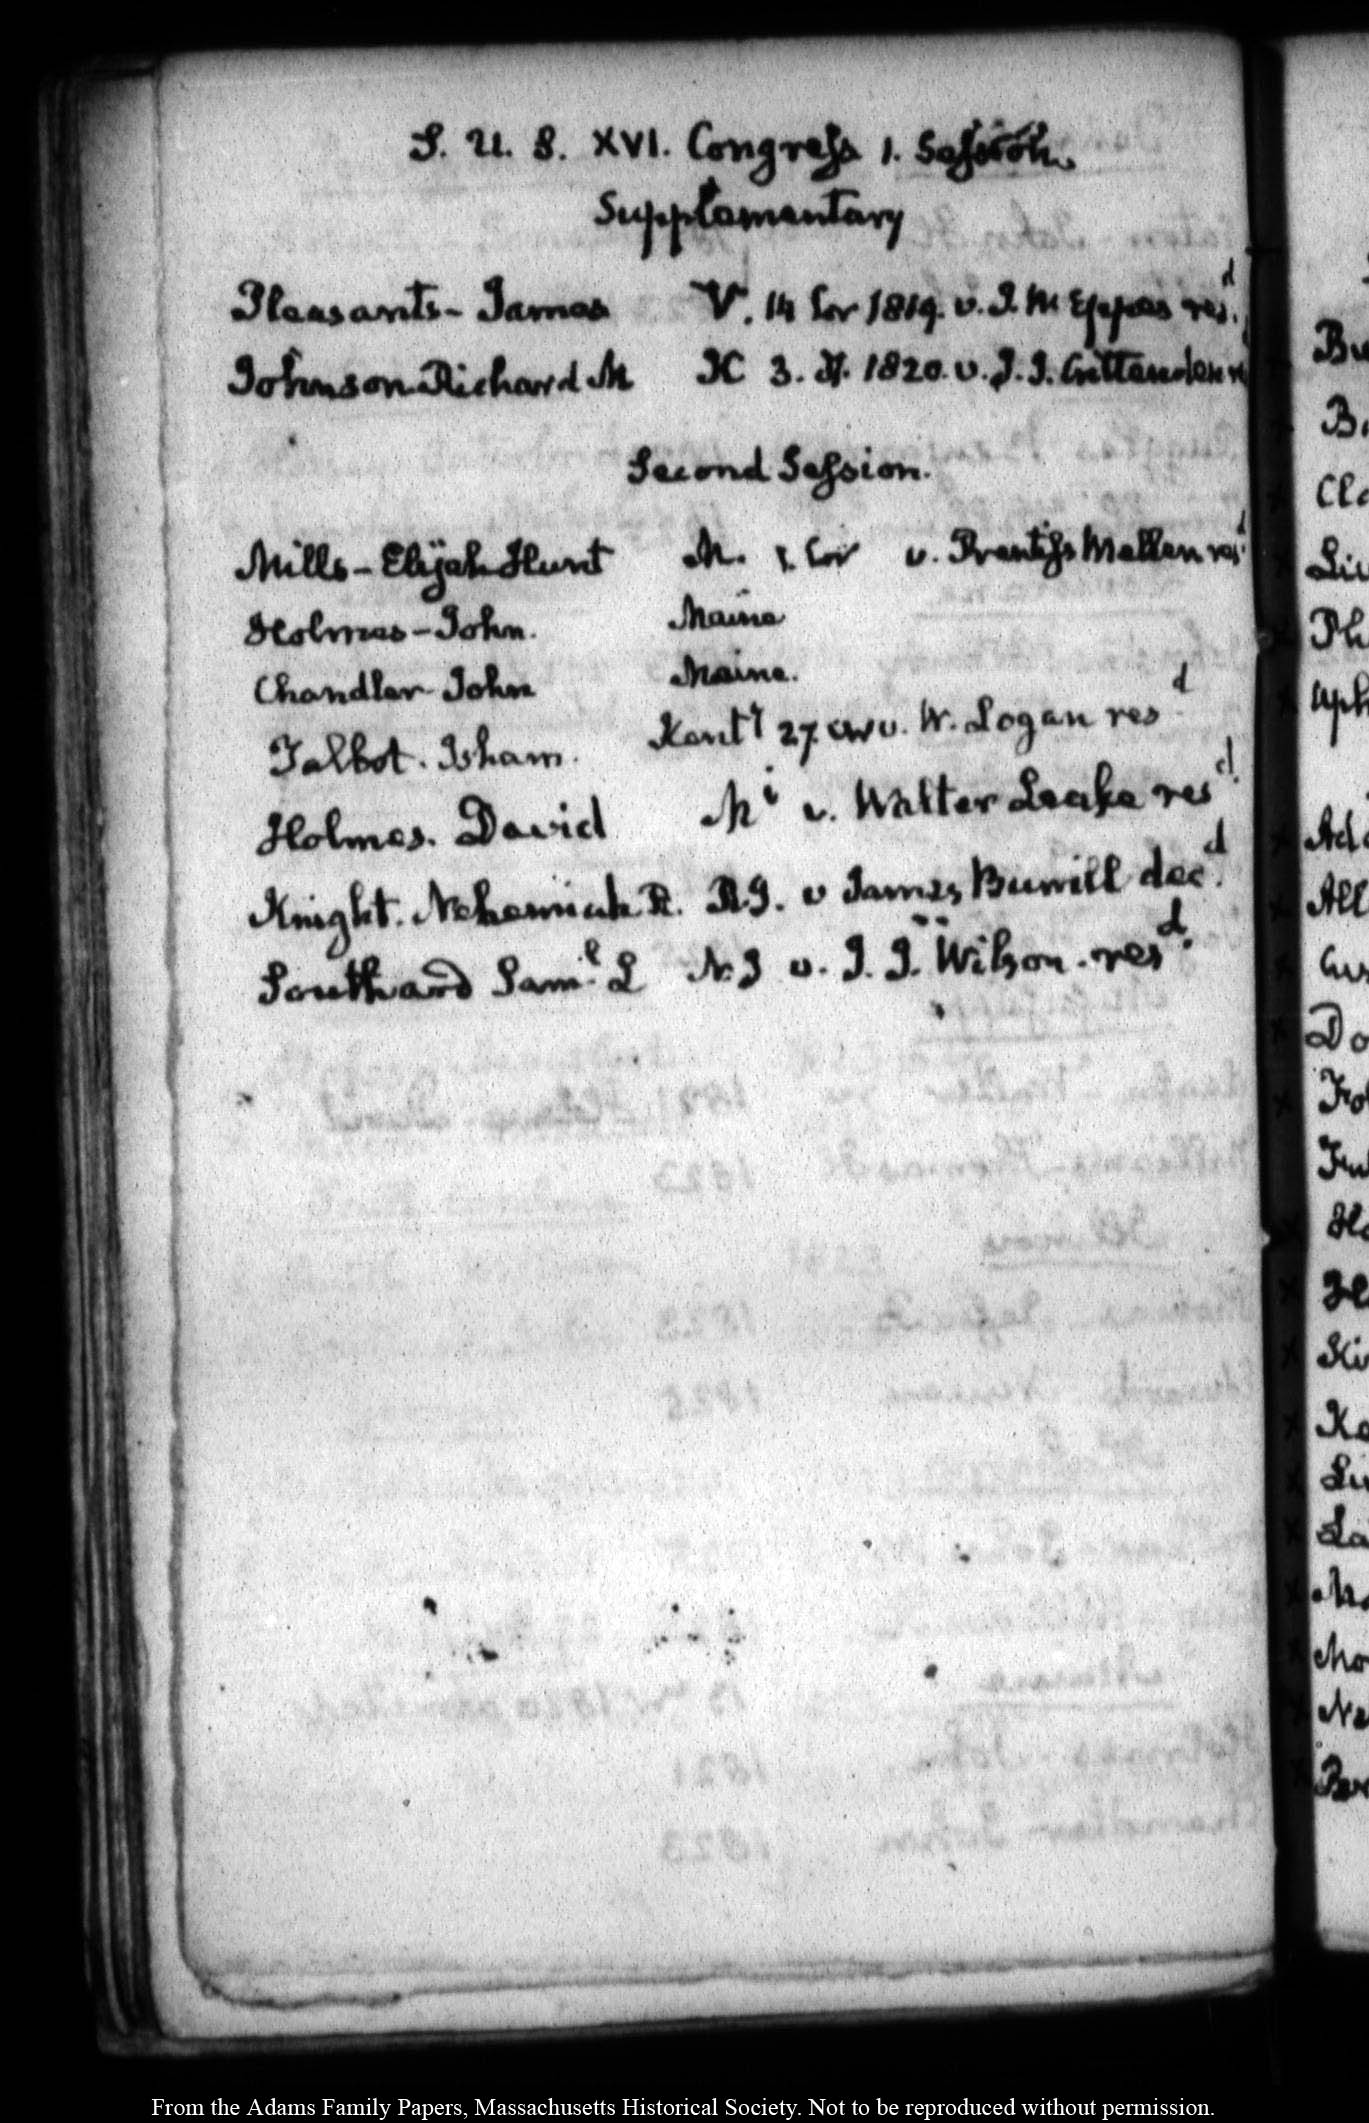 S. U. S. XVI. Congress 1. Session.
Supplementary
Pleasants - James V. 14 1819. v. J. W. Eppes resd.
Johnson Richard M K 3. 1820. v. J. J. Crittenden
Second Session.
Mills - Elijah Hunt M. v. Prentiss Mellen resd.
Holmes - John. Maine
Chandler John Maine.
Talbot. Isham. Kenty 27 v. W. Logan resd
Holmes. David Mi v. Walter Leake resd.
Knight. Nehemiah R. R.I. v James Burrill decd.
Southard Saml. L N. J v. J. J. Wilson. resd.
From the Adams Family Papers, Massachusetts Historical Society. Not to be reproduced without permission.